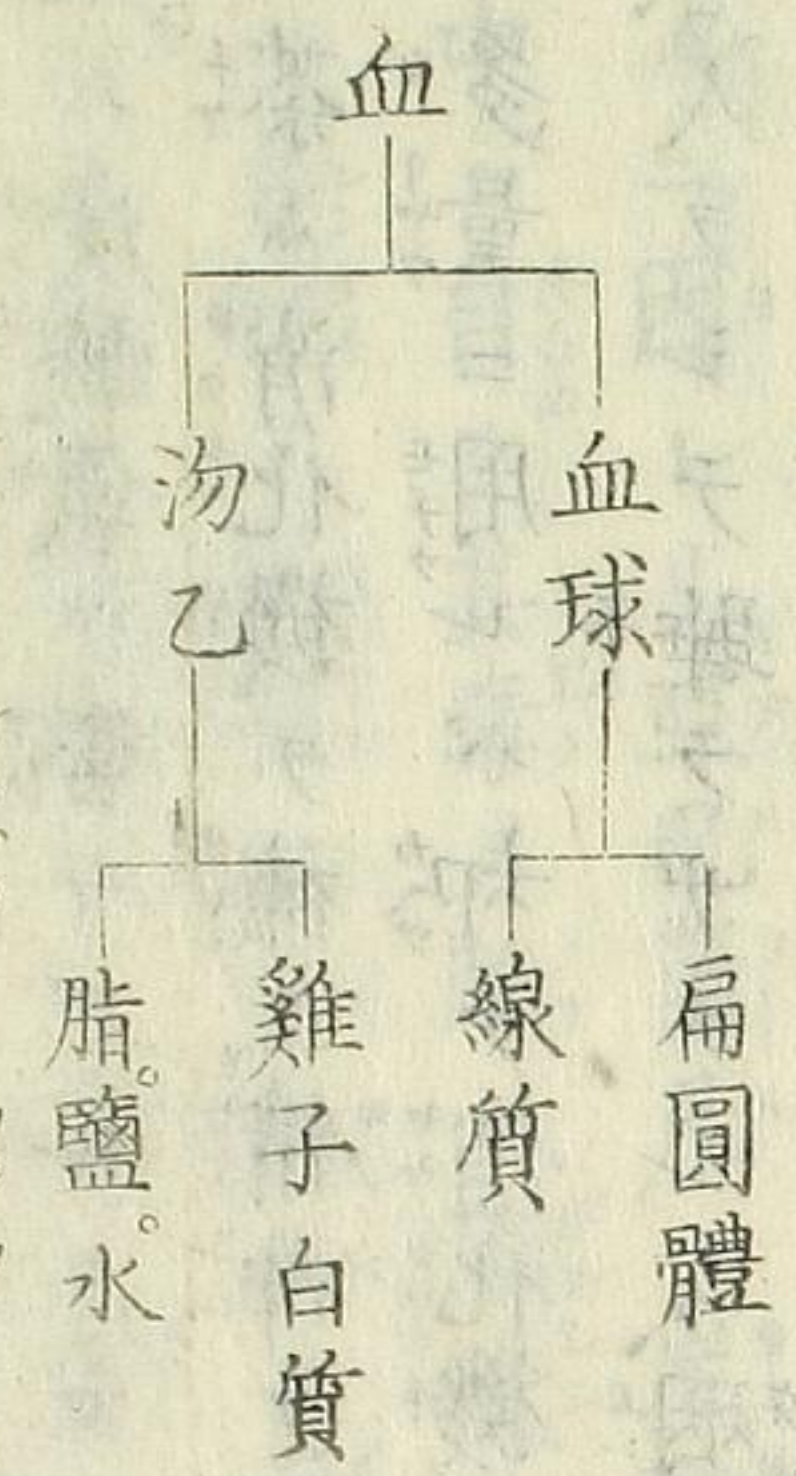 血
血球
沕乙
扁圓體
線質
雞子白質
脂。鹽。水